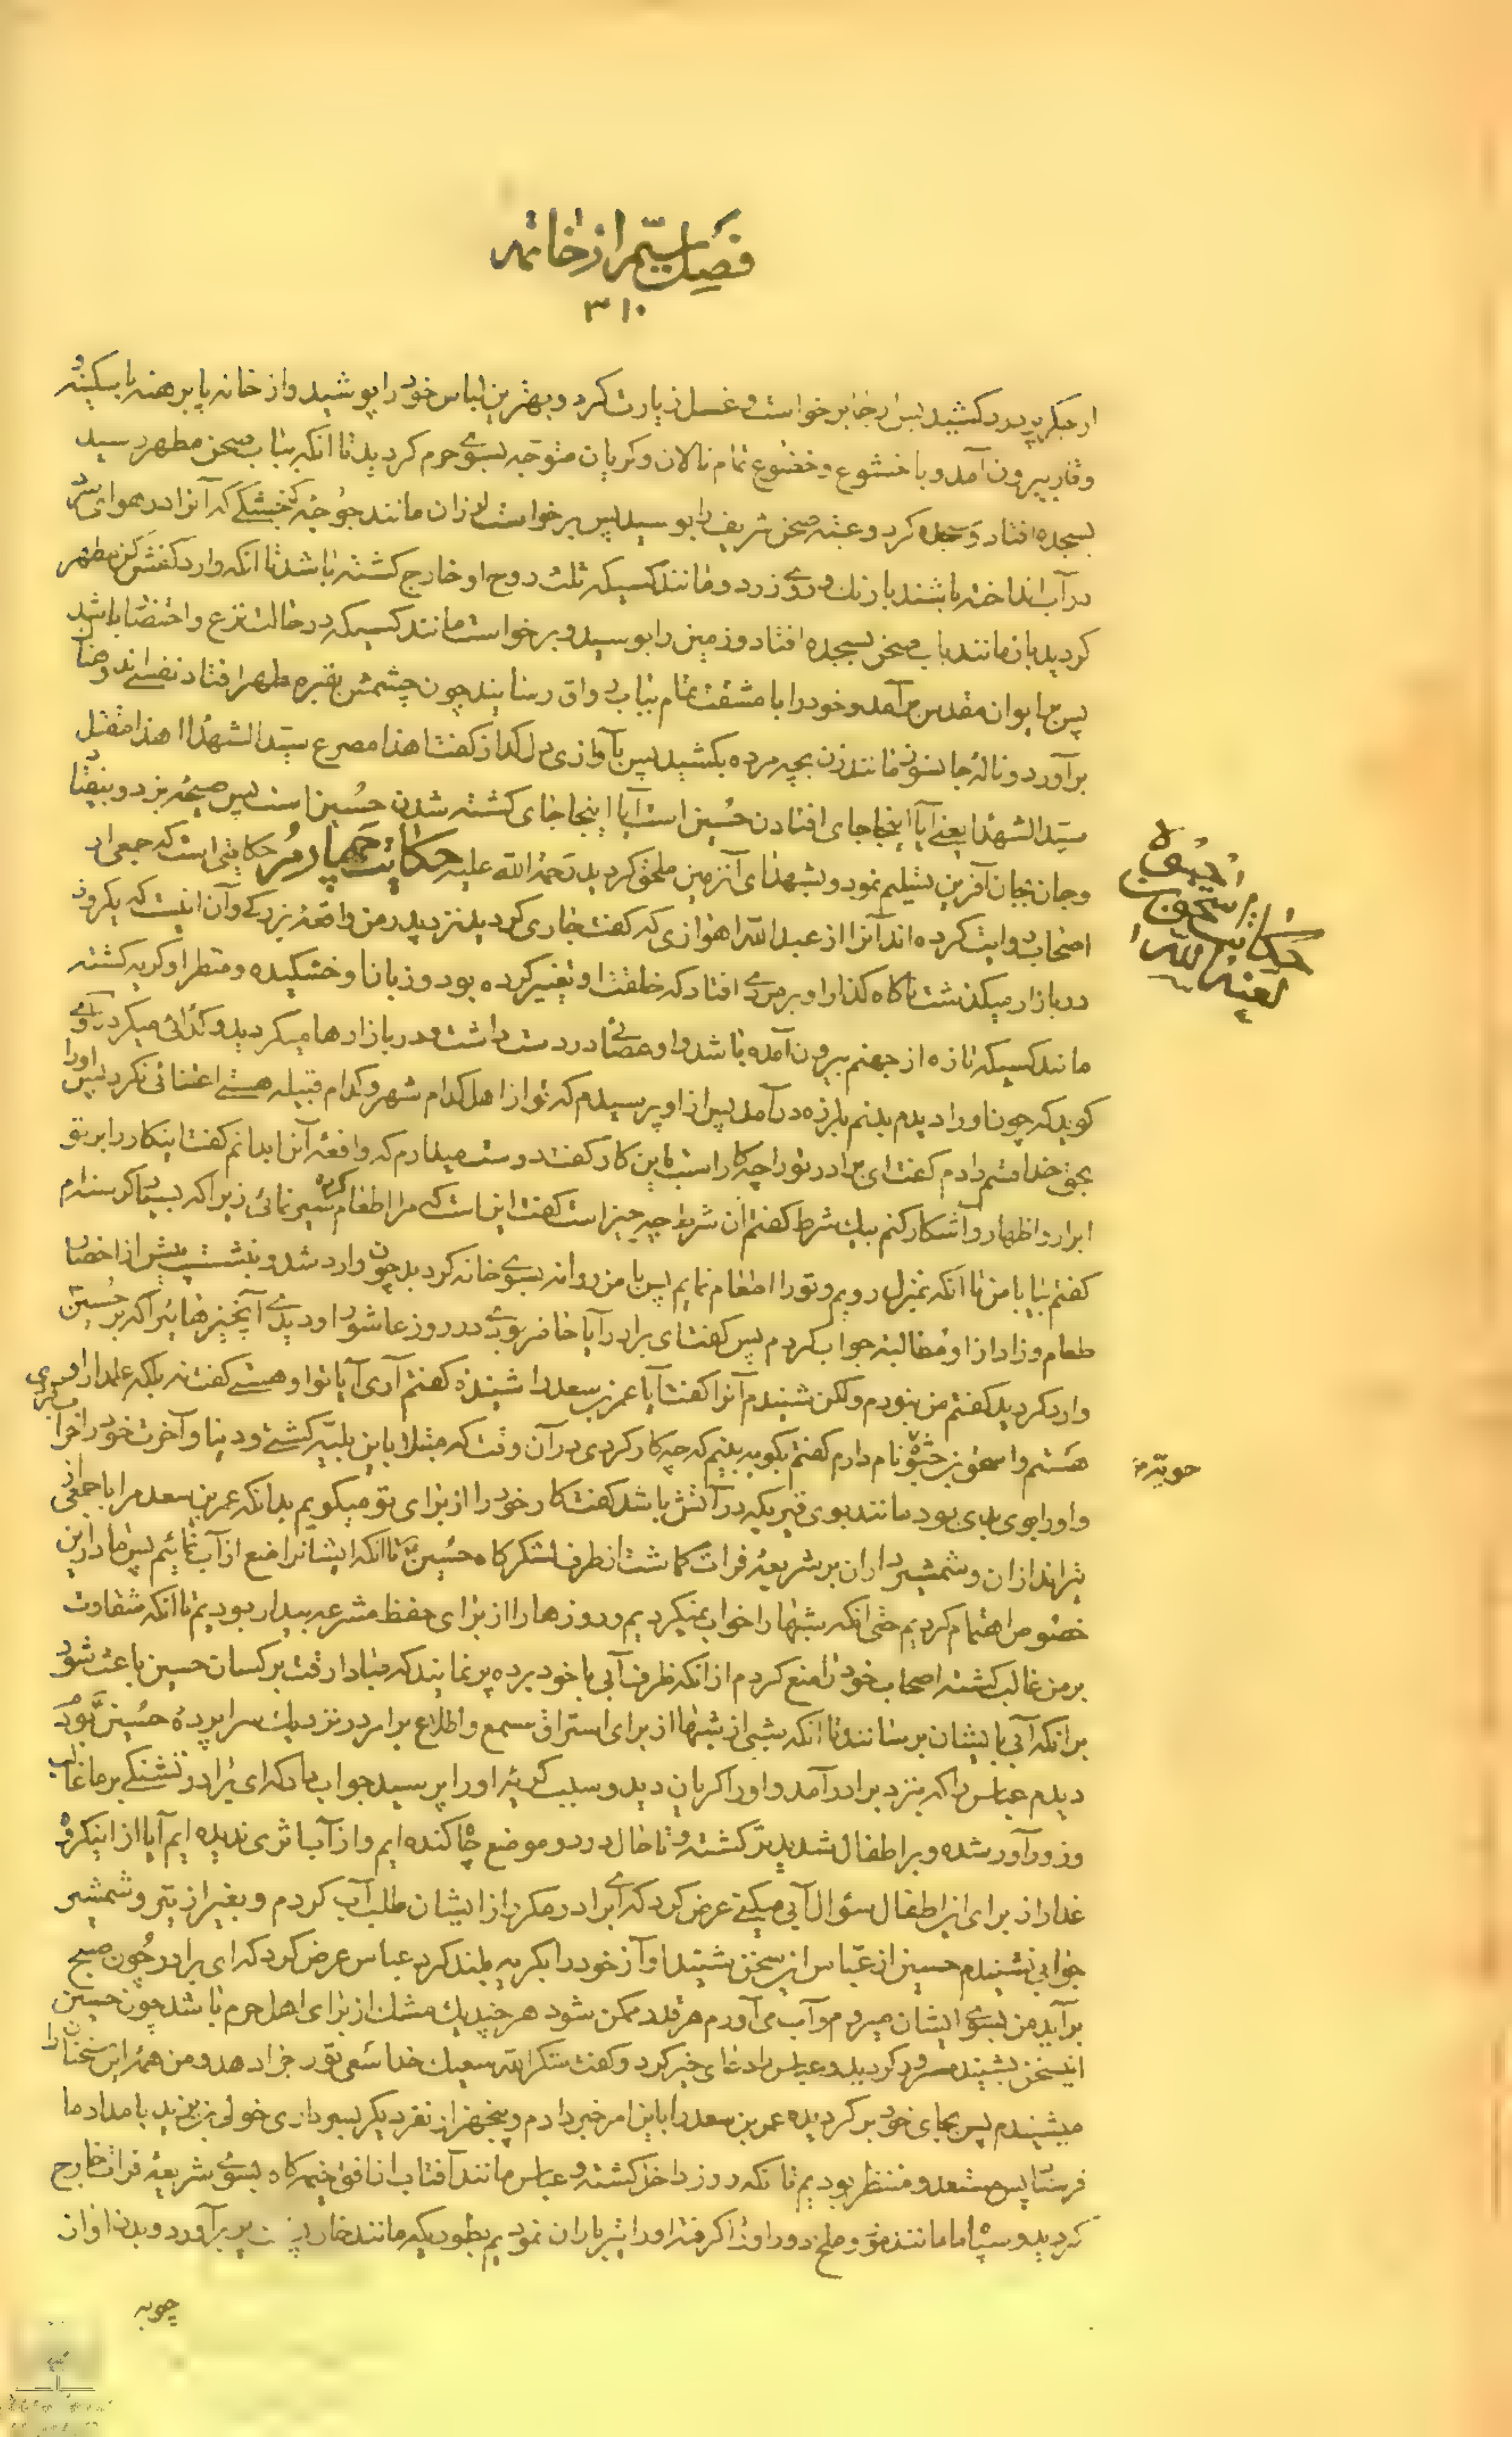 فصل سیم از خاتمه
۳۱۰
از جگر پر درد کشید پس از جا برخواست و غسل زیارت کرد و بهترین لباس خود را پوشید و از خانه پا برهنه با سکینه و
وقار بیرون آمد و با خشوع و خضوع تمام نالان و کریان متوجه بسوی حرم کردید تا آنکه بباب صحن مطهر رسید
بسجده افتاد و سجده کرد و عتبه صحن شریف را بوسید پس برخواست لرزان مانند جوجه کنجشکی که آنرا در هوای سرد
در آب انداخته باشند با رنك و روی زرد و مانند کسیکه ثلث روح او خارج کشته باشد تا آنکه وارد کفش کن مطهر
کردید باز مانند باب صحن بسجده افتاد و زمین را بوسید و برخواست مانند کسیکه در حالت نزع و احتضار باشد
پس بایوان مقدس بر آمد و خود را با مشقت تمام بباب رواق رسانید چون چشمش بقبر مطهر افتاد نفسی اندوهناك
برآورد و ناله جانسوز مانند زن بچه مرده بکشید پس بآوازی دل کداز کفت اهذا مصرع سید الشهداء اهذا مقتل
سید الشهدا یعنی آیا اینجا جای افتادن حسین است آیا اینجا جای کشته شدن حسین است پس صیحه بزد و بیفتاد
و جان بجان آفرین تسلیم نمود و بشهدای آنزمین ملحق کردید رحمة الله علیه حکایت چهارم حکایتی است که جمعی از
اصحاب روایت کرده اند آنرا از عبد الله اهوازی که کفت جاری کردید نزد پدر من واقعه بزرکی و آن اینست که یکروز
در بازار میکذشت ناکاه کذار او بر مردی افتاد که خلقت او تغییر کرده بود و زبان او خشکیده و منظر او کریه کشته
مانند کسیکه تازه از جهنم بیرون آمده باشد و او عصائی در دست داشت و در بازارها میکردید و کدائی میکرد راوی
کوید که چون او را دیدم بدنم بلرزه در آمد پس از او پرسیدم که تو از اهل کدام شهر و کدام قبیله هستی اعتنائی نکرد پس او را
بحق خدا قسم دادم کفت ای برادر تو را چه کار است باین کار کفت دوست میدارم که واقعه آنرا بدانم کفت اینکار را بر تو
ابراز و اظهار و آشکار کنم بیك شرط کفتم آن شرط چه چیز است کفت این است که مرا اطعام کرده سیر نمائی زیرا که بسیار کرسنه ام
کفتم بیا با من تا آنکه بمنزل رویم و تو را اطعام نمایم پس با من روانه بسوی خانه کردید چون وارد شد و بنشست پیش از احضار
طعام و زاد از او مطالبه جواب کردم پس کفت ای برادر آیا حاضر بودی در روز عاشورا و دیدی آنچیزهائیرا که بر حسین
وارد کردید کفتم من نبودم ولکن شنیدم آنرا کفت آیا عمر بن سعد را شنیده کفتم آری آیا تو او هستی کفت نه بلکه علمدار او
هستم و اسحق بن حثوه نام دارم کفتم بکو به بینم که چه کار کردی در آن وقت که مبتلا باین بلیه کشتی و دنیا و آخرت خود را خراب کردی
و او را بوی بدی بود مانند بوی قیریکه در آتش باشد کفت کار خود را از برای تو میکویم بدانکه عمر بن سعد مرا با جمعی از
تیراندازان و شمشیرداران بر شریعه فرات کماشت از طرف لشکر کاه حسین تا آنکه ایشانرا منع از آب نمائیم پس ما در این
خصوص اهتمام کردیم حتی آنکه شبها را خواب نمیکردیم و روزها را از برای حفظ مشرعه بیدار بودیم تا آنکه شقاوت
بر من غالب کشته اصحاب خود را منع کردم از آنکه ظرف آبی با خود برده پر نمایند که مبادا رقت بر کسان حسین باعث شود
بر آنکه آبی بایشان برسانند تا آنکه شبی از شبها از برای استراق سمع و اطلاع بر امر در نزدیك سراپرده حسین بودم
دیدم عباس را که بنزد برادر آمد و او را کریان دید و سبب کریه او را پرسید جواب داد که ای برادر تشنکی بر ما غالب
و زورآور شده و بر اطفال شدید تر کشته و تا حال در دو موضع چاه کنده ایم و از آب اثری ندیده ایم آیا از اینکروه
غدار از برای این اطفال سؤال آبی میکنی عرض کرد که ای برادر مکرر از ایشان طلب آب کردم و بغیر از تیر و شمشیر
جوابی نشنیدم حسین از عباس این سخن شنید آواز خود را بکریه بلند کرد عباس عرض کرد که ای برادر چون صبح
برآید من بسوی ایشان میروم و آب می آورم هر قدر ممکن شود هر چند یك مشك از برای اهل حرم باشد چون حسین
اینسخن بشنید مسرور کردید و عباس را دعای خیر کرد و کفت شکر الله سعیك خدا سعی تو را جزا دهد و من همه این سخنان را
میشنیدم پس بجای خود بر کردیده عمر بن سعد را باین امر خبر دادم و پنجهزار نفر دیکر بسرداری خولی بن یزید بامداد ما
فرستاد پس مستعد و منتظر بودیم تا آنکه روز داخل کشته و عباس مانند آفتاب از افق خیمه کاه بسوی شریعه فرات خارج
کردید و سپاه ما مانند مور و ملخ دور او را کرفته او را تیر باران نمودیم بطوریکه مانند خارپشت پر برآورد و بدن او از
حکایة اسحق بن حویة لعنه الله
حویة خ
چوبه